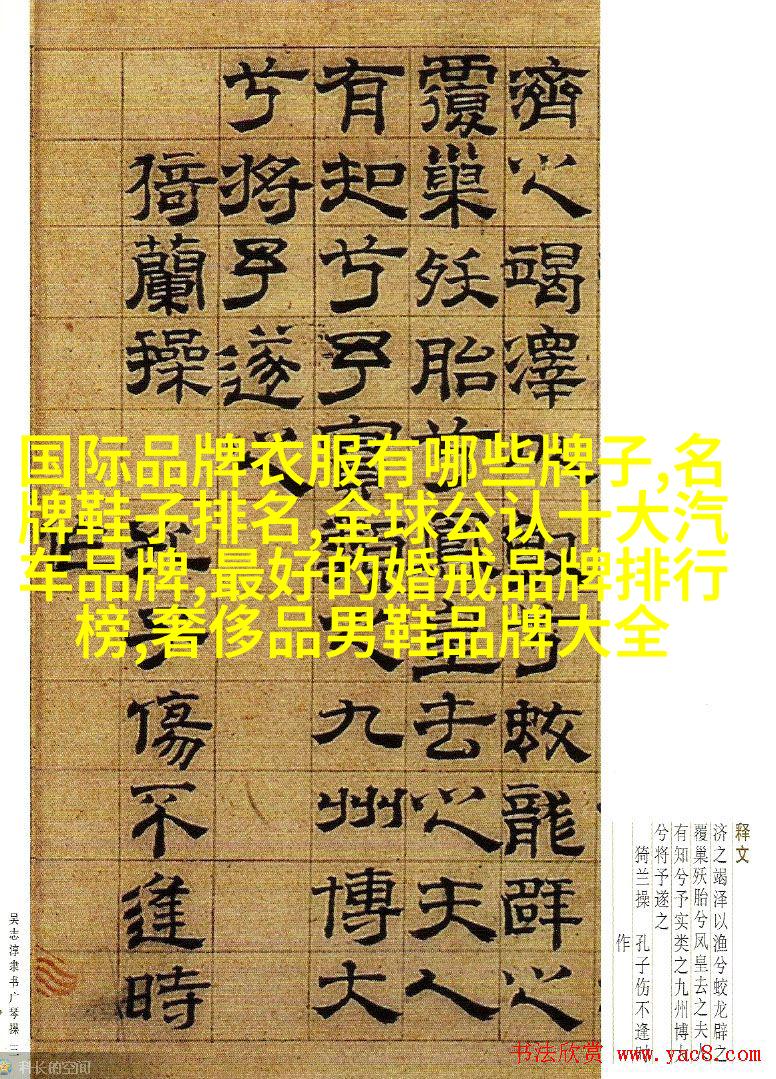 国际品牌衣服有哪些牌子,名
牌鞋子排名,全球公认十大汽
车品牌,最好的婚戒品牌排行
榜,奢侈品男鞋品牌大全
濟之竭澤兮蛟龍辟之
覆巢殀胎兮鳳皇去之夫人
有知兮予實類之九州博大
兮將予遂之
猗蘭操 孔子傷不逢時
作
释文
济之竭泽以渔兮蛟龙辟之
覆巢殀胎兮凤皇去之夫
有知兮予实类之九州博
兮将予遂之
猗兰操 孔子伤不逢
作
吴志淳隶书广琴操 三
科长的空间
书法欣赏 www.yac8.com